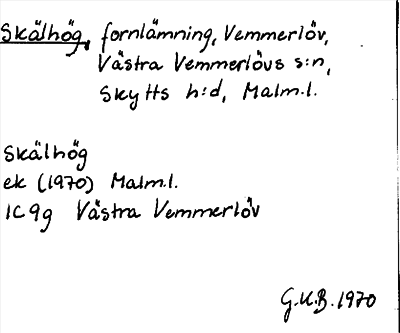 Skälhög, fornlämning, Vemmerlöv,
Västra Vemmerlövs s:n,
Skytts h:d, Malm.l.
Skälhög
ek (1970) Malm.l.
1C 9g Västra Vemmerlöv
G.U.B. 1970